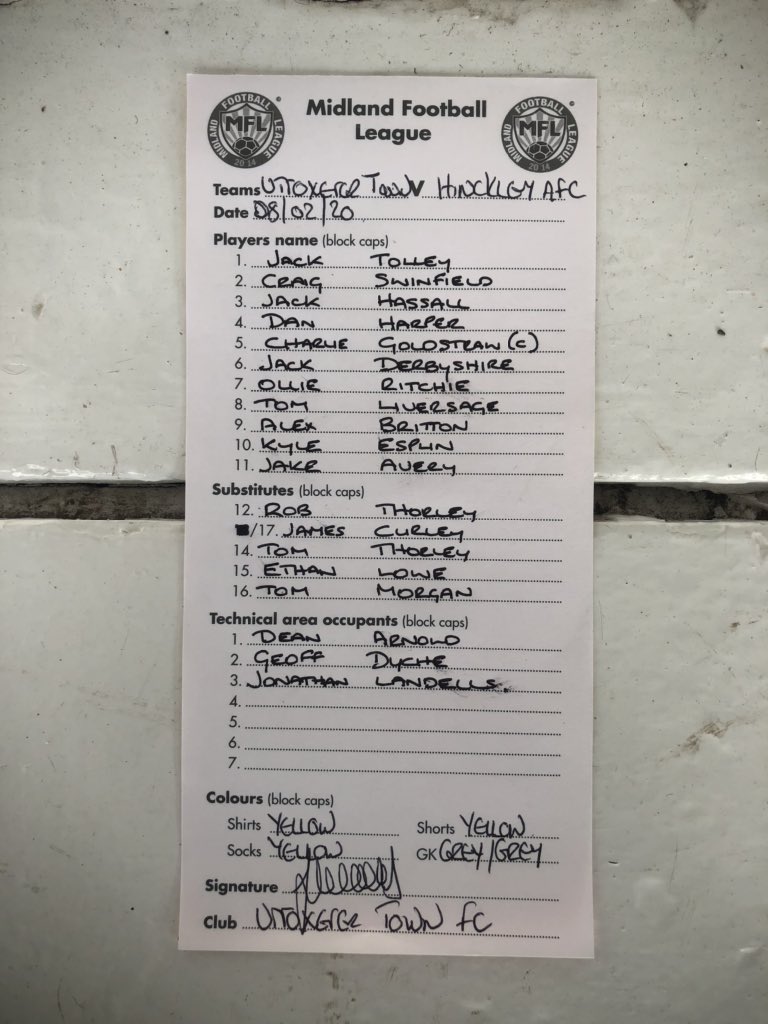 MIDLAND FOOTBALL LEAGUE MFL 2014
Midland Football League
MIDLAND FOOTBALL LEAGUE MFL 2014
Teams UTTOXETER TOWN V HINCKLEY AFC
Date 08/02/20
Players name (block caps)
1. JACK TOLLEY
2. CRAIG SWINFIELD
3. JACK HASSALL
4. DAN HARPER
5. CHARLIE GOLDSTRAW (C)
6. JACK DERBYSHIRE
7. OLLIE RITCHIE
8. TOM LIVERSAGE
9. ALEX BRITTON
10. KYLE ESPLIN
11. JAKE AVERY
Substitutes (block caps)
12. ROB THORLEY
/17. JAMES CURLEY
14. TOM THORLEY
15. ETHAN LOWE
16. TOM MORGAN
Technical area occupants (block caps)
1. DEAN ARNOLD
2. GEOFF DYCHE
3. JONATHAN LANDELLS.
4.
5.
6.
7.
Colours (block caps)
Shirts YELLOW Shorts YELLOW
Socks YELLOW GK GREY/GREY
Signature
Club UTTOXETER TOWN FC